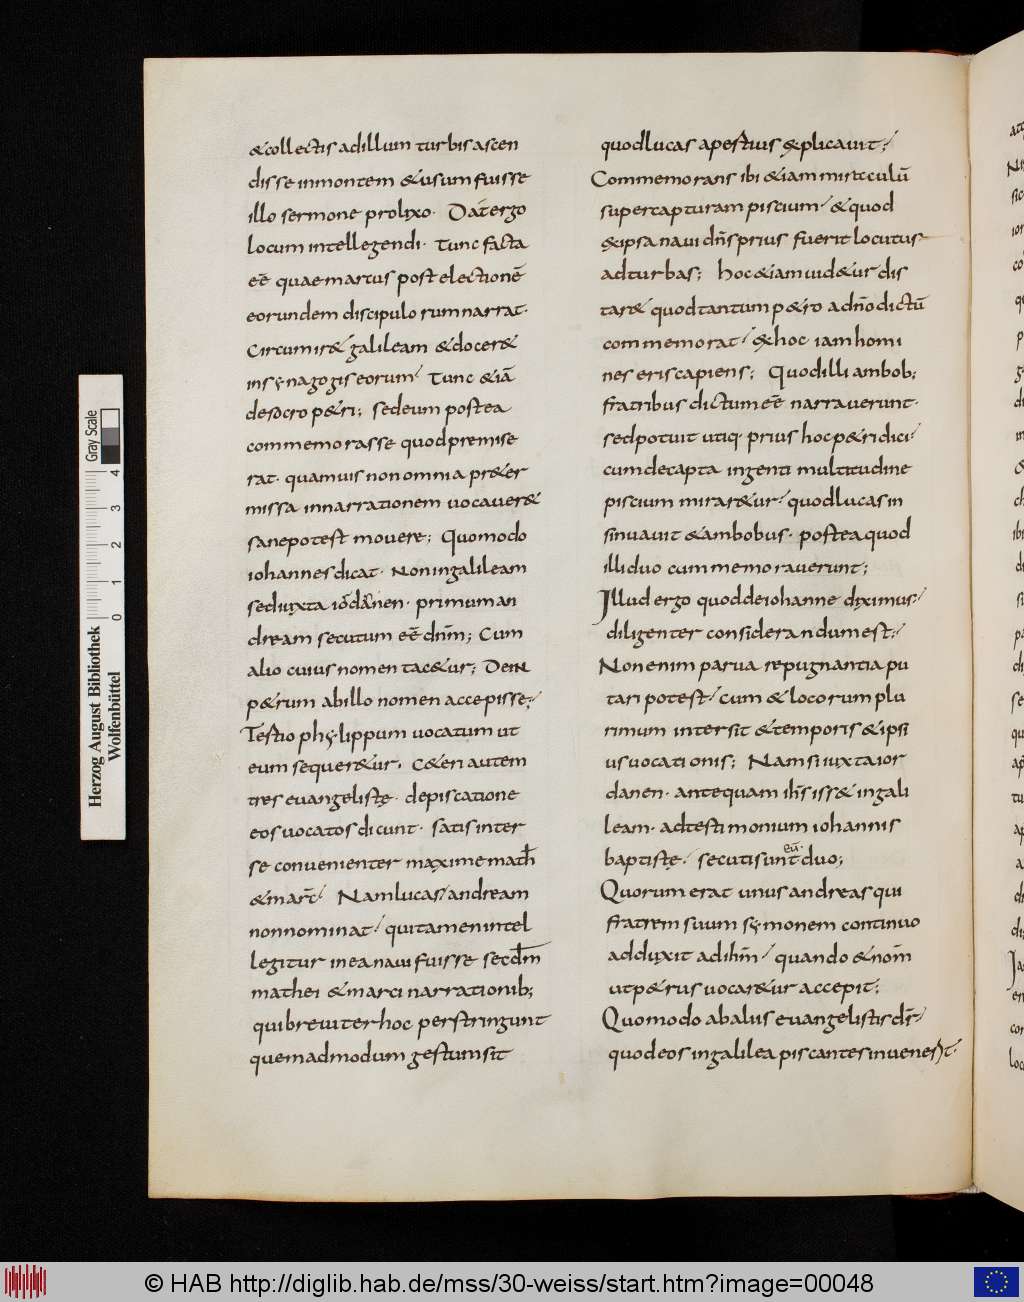 &collectis adillum turbis ascen
disse inmontem &usum fuisse
illo sermone prolixo. Dat ergo
locum intellegendi. Tunc facta
eē quae marcus post electionē
eorundem discipulorum narrat.
Circumir& galileam &docer&
insynagogis eorum. Tunc &iā
desocro p&ri; sedeum postea
commemorasse quodpremise
rat. quamuis nonomnia pr&er
missa innarrationem uocauer&
sanepotest mouere; Quomodo
iohannes dicat. Noningalileam
sediuxta iordanen. primum an
dream secutum eē dn̄m; Cum
alio cuius nomen tac&ur; Dein
p&rum abillo nomen accepisse;
Testio phylippum uocatum ut
eum sequer&ur. C&eri autem
tres euangelistę. depiscatione
eos uocatos dicunt. satis inter
se conuenienter maxime math
&marc̄. Nam lucas andream
nonnominat. quitamen intel
legitur inea naui fuisse secd̄m
mathei &marci narrationib;
qui breuiter hoc perstringunt
quemadmodum gestum sit
quod lucas apestius explicauit;
Commemorans ibi &iam miraculū
super captura piscium. &quod
exipsa naui dn̄s prius fuerit locutus
adturbas; hoc &iam uid&ur dis
tar& quod tantum p&ro adn̄o dictū
commemorat. exhoc iam homi
nes eris capiens; Quod illi ambob;
fratribus dictum eē narrauerunt.
sed potuit utiq. prius hoc p&ri dici
cum decapta ingenti multitudine
piscium mirar&ur. quod lucas in
sinuauit &ambobus. postea quod
illi duo cummemorauerunt;
Illud ergo quod deiohanne diximus
diligenter considerandum est;
Non enim parua repugnantia pu
tari potest. cum &locorum plu
rimum intersit &temporis &ipsi
us uocationis; Nam si iuxta ior
danen. antequam ih̄s iss& ingali
leam. adtestimonium iohannis
eū.
baptistę. secuti sunt duo;
Quorum erat unus andreas qui
fratrem suum symonem continuo
adduxit adihm̄. quando &nom̄
ut p&rus uocar&ur accepit;
Quomodo abaliis euangelistis dr̄
quod eos ingalilea piscantes inuenerit.
Herzog August Bibliothek
Wolfenbüttel
0 1 2 3 4
Gray Scale
© HAB http://diglib.hab.de/mss/30-weiss/start.htm?image=00048